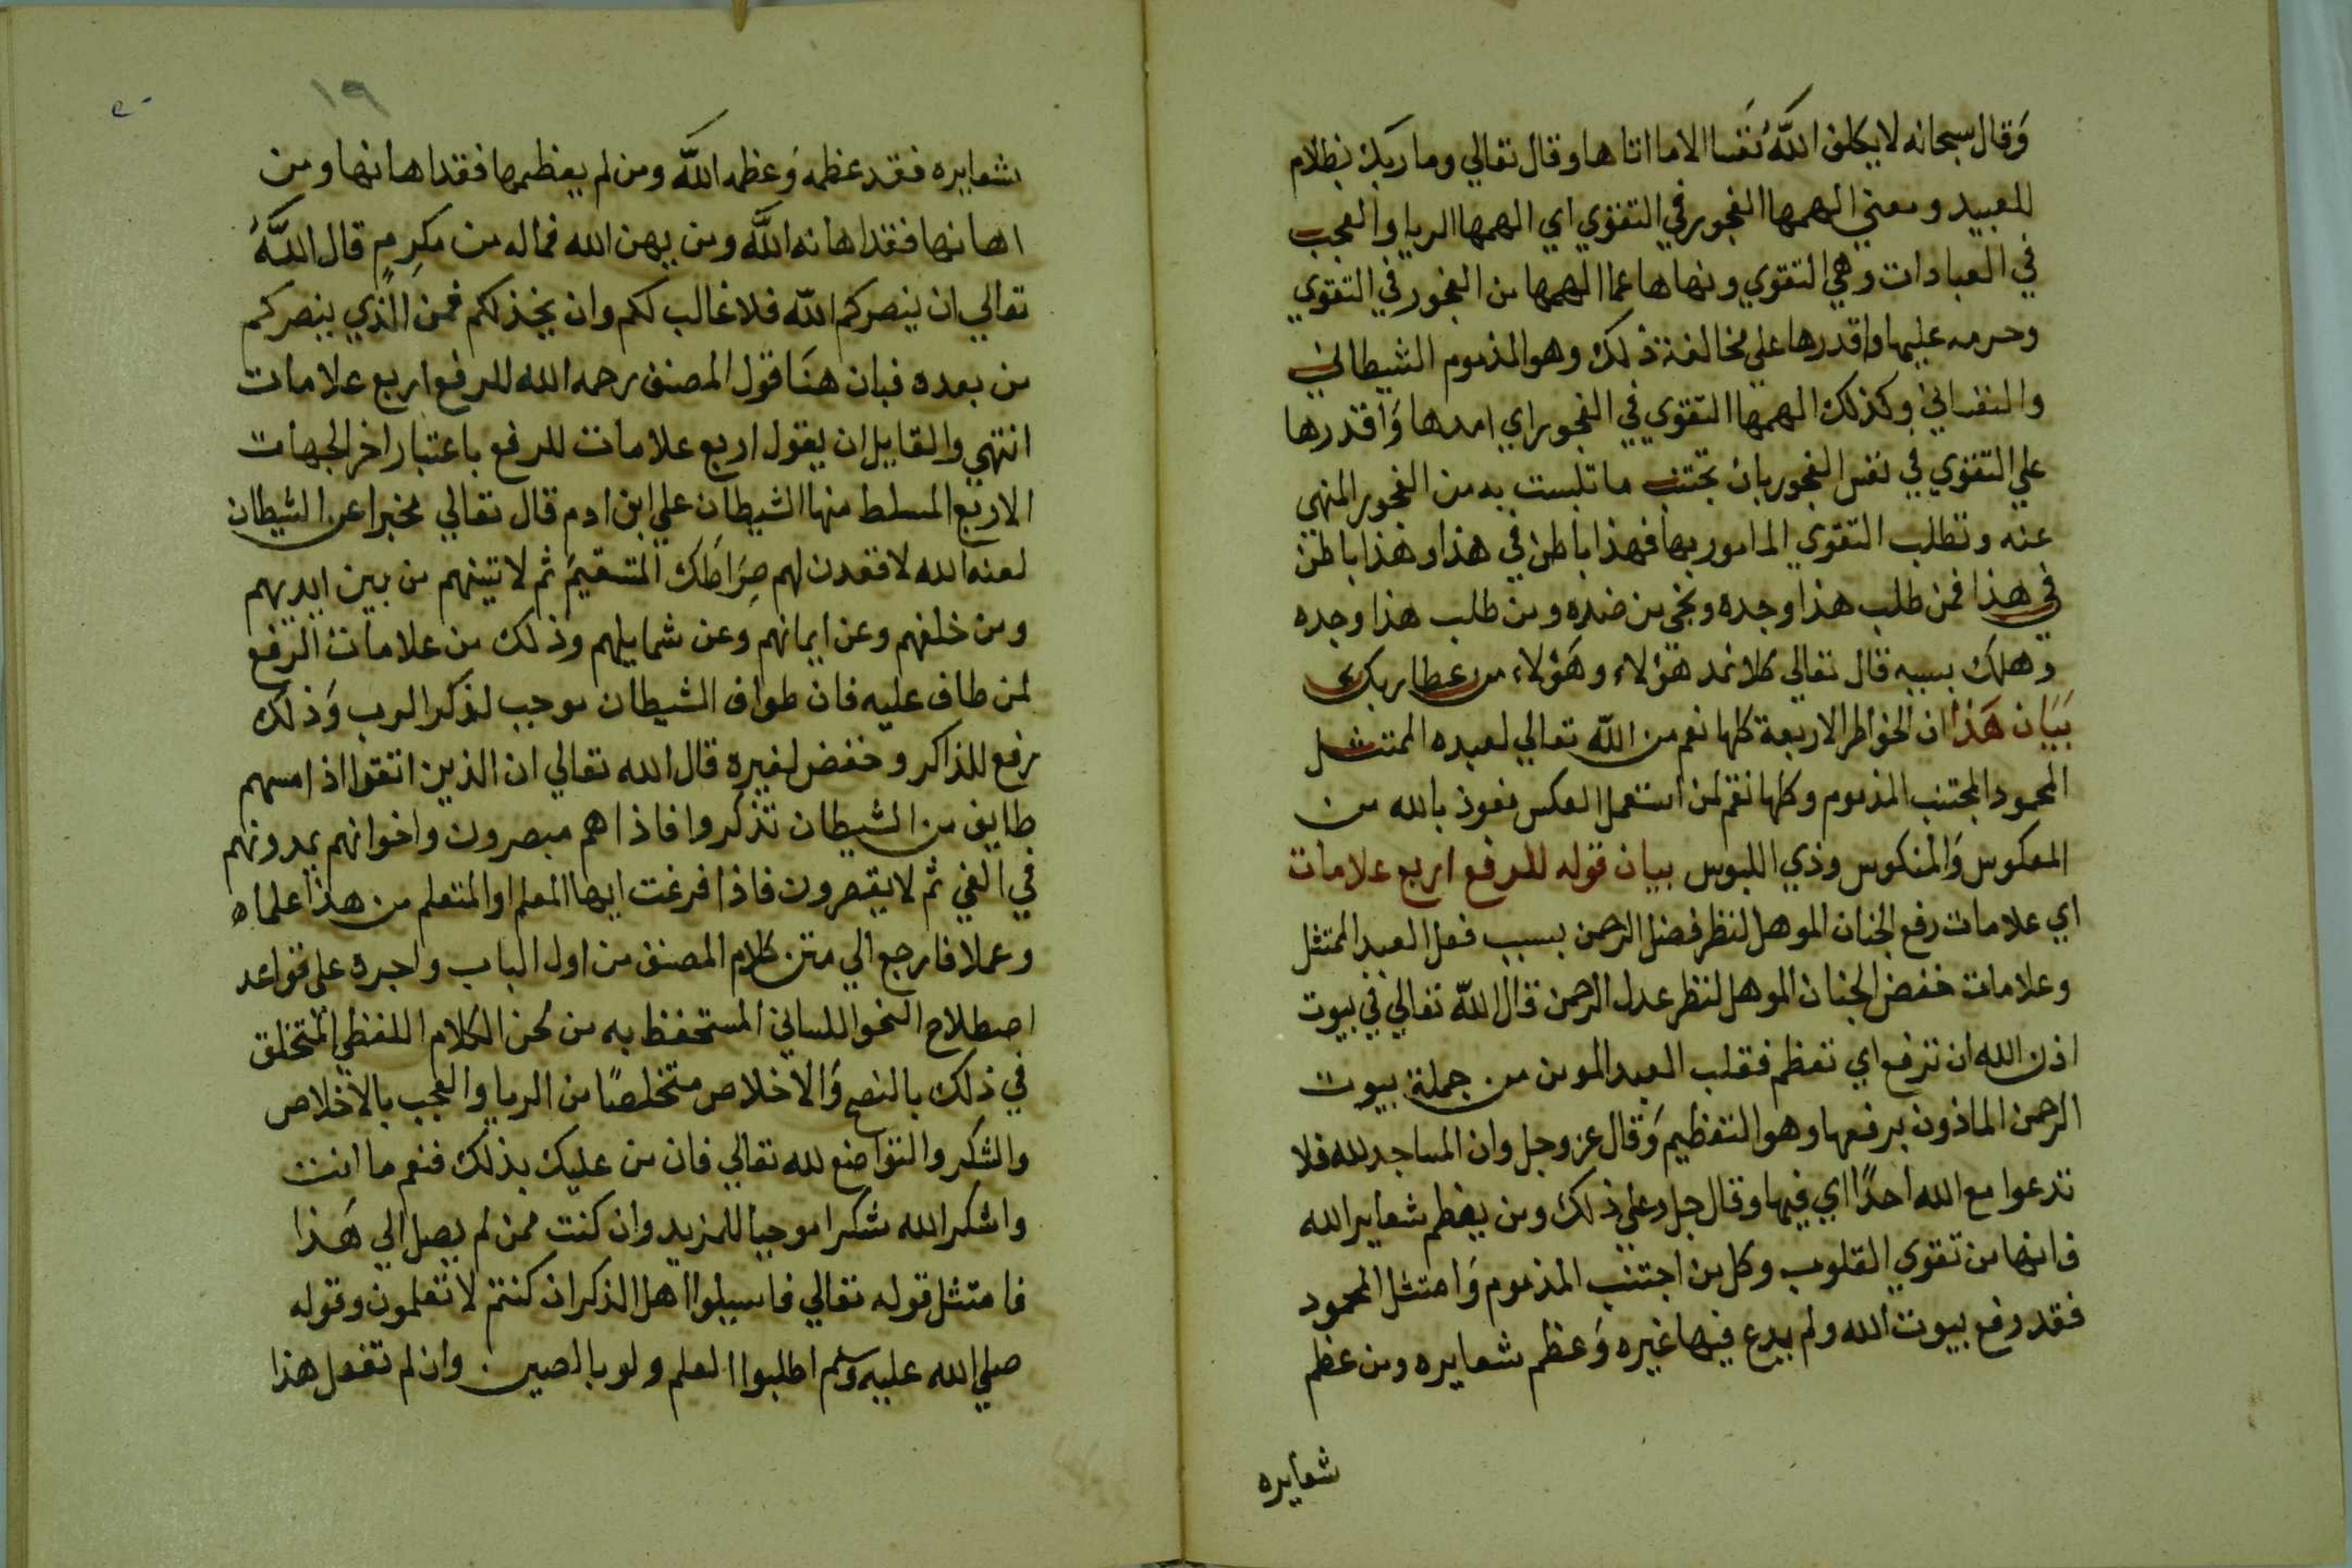 وَقال سبحانه لا يكلف اللّٰه نَفسا الا ما اتاها وقال تعالي وما ربك بظلام
للعبيد ومعني الهمها الفجور في التقوي اي الهمها الريا والعجب
في العبادات وهي التقوي ونهاها عما الهمها من الفجور في التقوي
وحرمه عليها واقدرها علي مخالفة ذلك وهو المذموم الشيطاني
والنفساني وكذلك الهمها التقوي في الفجور اي امدها وَاقدرها
علي التقوي في نفس الفجور بان تجتنب ما تلبست به من الفجور المنهي
عنه وتطلب التقوي المامور بها فهذا باطن في هذا وهذا باطن
في هذا فمن طلب هذا وجده ونجي من ضده ومن طلب هذا وجده
وهلك بسببه قال تعالي كلا نمد هؤلاء وهَؤلاء من عطا ربك
بَيَان هَذا ان الخواطر الاربعة كلها نعم من اللّه تعالي لعبده الممتثل
المحمود المجتنب المذموم وكلها نقم لمن استعمل العكس نعوذ بالله من
المعكوس وَالمنكوس وذي اللبوس بيان قوله للرفع اربع علامات
اي علامات رفع الجنان الموهل لنظر فضل الرحمن بسبب فعل العبد الممتثل
وعلامات خفض الجنان الموهل لنظر عدل الرحمن قال اللّه تعالي في بيوت
اذن الله ان ترفع اي تعظم فقلب العبد المومن من جملة بيوت
الرحمن الماذون برفعها وهو التعظيم وَقال عز وجل وان المساجد لله فلا
تدعوا مع الله احدًا اي فيها وقال جل وعلي ذلك ومن يعظم شعاير الله
فانها من تقوي القلوب وكل من اجتنب المذموم وَامتثل المحمود
فقد رفع بيوت الله ولم يدع فيها غيره وَعظم شعايره ومن عظم
شعايره
١٩
شعايره فقد عظمه وَعظمه اللّٰه ومن لم يعظمها فقد اهانها ومن
اهانها فقد اهانه اللّٰه ومن يهن الله فماله من مكرِمٍ قال اللّٰهُ
تعالي ان ينصركم اللّه فلا غالب لكم وان يخذلكم فمن الذي ينصركم
من بعده فبان هنَا قول المصنف رحمه الله للرفع اربع علامات
انتهي والقايل ان يقول اربع علامات للرفع باعتبار اخر الجهات
الاربع المسلط منها الشيطان علي ابن ادم قال تعالي مخبرا عن الشيطان
لعنه الله لاقعدن لهم صِرَاطَك المستقيمَ ثم لاتينهم من بين ايديهم
ومن خلفهم وعن ايمانهم وعن شمايلهم وذلك من علامات الرفع
لمن طاف عليه فان طواف الشيطان موجب لذكر الرب وَذلك
رفع للذاكر وخفض لغيره قال الله تعالي ان الذين اتقوا اذا مسهم
طايف من الشيطان تذكروا فاذا هم مبصرون واخوانهم يمدونهم
في الغي ثم لا يقصرون فاذا فرغت ايها المعلم او المتعلم من هذا علما
وعملا فارجع الي متن كلام المصنف من اول الباب واجره علي قواعد
اصطلاح النحو اللساني المستحفظ به من لحن الكلام اللفظي المتخلق
في ذلك بالنصح وَالاخلاص متخلصًا من الريا والعجب بالاخلاص
والشكر والتواضع لله تعالي فان من عليك بذلك فنعم ما انت
واشكر الله شكرا موجبا للمزيد وان كنت ممن لم يصل الي هَذا
فامتثل قوله تعالي فاسيلوا اهل الذكر ان كنتم لا تعلمون وقوله
صلي الله عليه وسلم اطلبوا العلم ولو بالصين . وان لم تفعل هذا